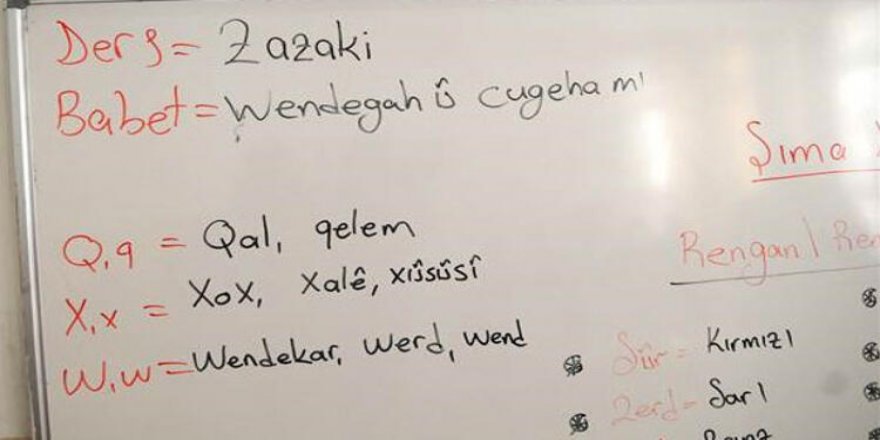 Ders = Zazaki
Babet = Wendegah û cugeha mı
Q,q = Qal, qelem
X,x = XoX, Xalê, xûsûsî
W,w = Wendekar, werd, wend
Şıma
Rengan
Sûr = Kırmızı
Zerd = Sarı